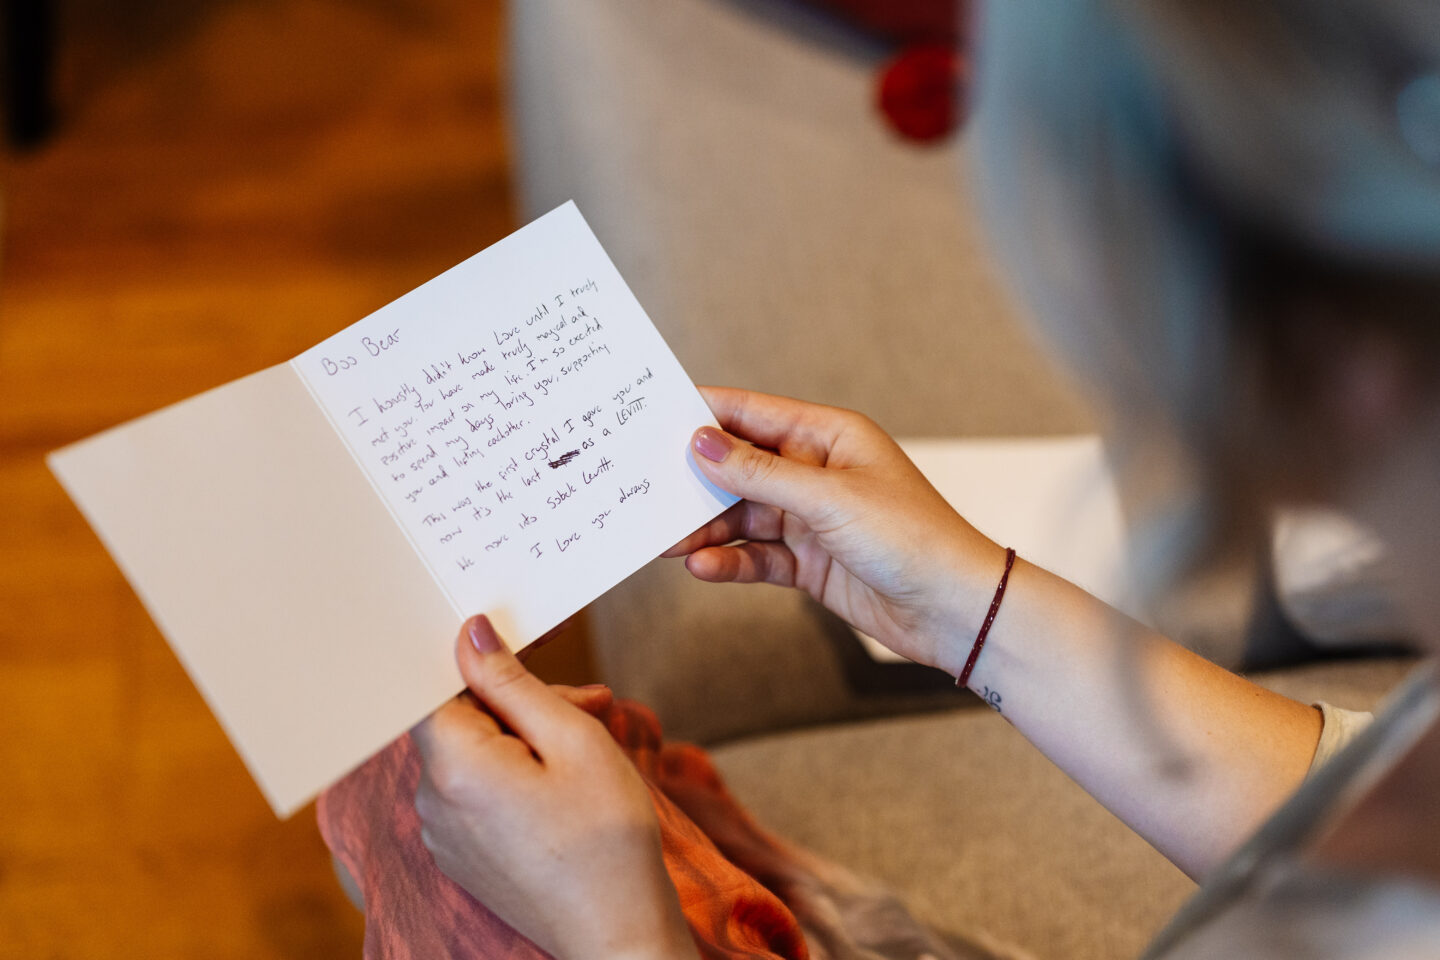 Boo Bear
I honestly didn't know Love until I truely
met you. You have made truely magical and
positive impact on my life. I'm so excited
to spend my days loving you, supporting
you and lifting eachother.
This was the first crystal I gave you and
now it's the last as a LEVITT.
We move into Sobek Levitt.
I Love you always